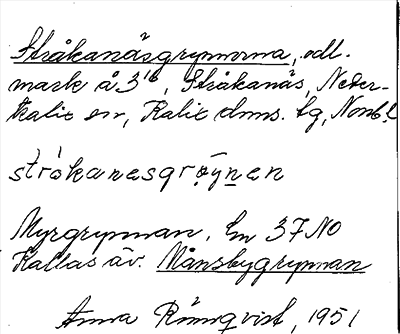 Stråkanäsgrynnorna, odl.
mark å 3¹⁶, Stråkanäs, Neder-
kalix sn, Kalix dms. tg, Nordb.
stråkanasgrøynen
Myrgrynnan. En 37 NO
Kallas äv. Månsbygrynnan
Anna Rönnqvist, 1951